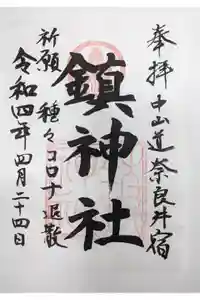 奉拝 中山道 奈良井宿
鎮神社
祈願 種々コロナ退散
令和四年四月二十四日